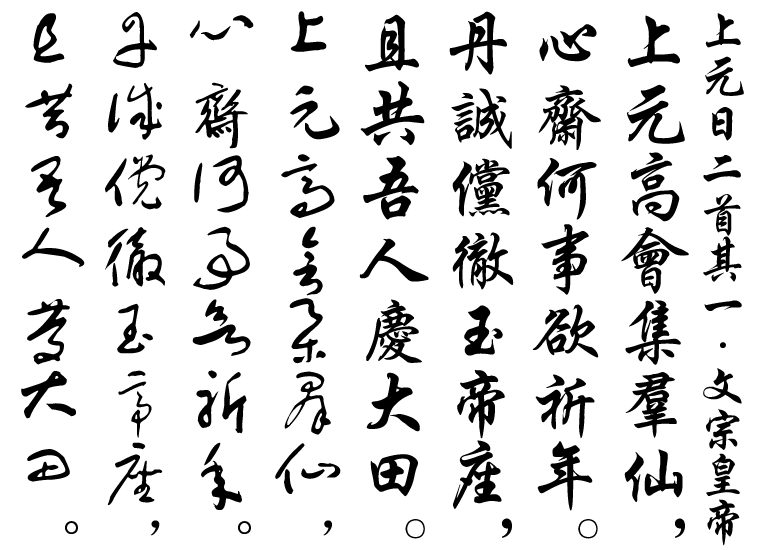 上元日二首其一·文宗皇帝
上元高會集羣仙，
心齋何事欲祈年。
丹誠儻徹玉帝座，
且共吾人慶大田。
上元高會集羣仙，
心齋何事欲祈年。
丹誠儻徹玉帝座，
且共吾人慶大田。